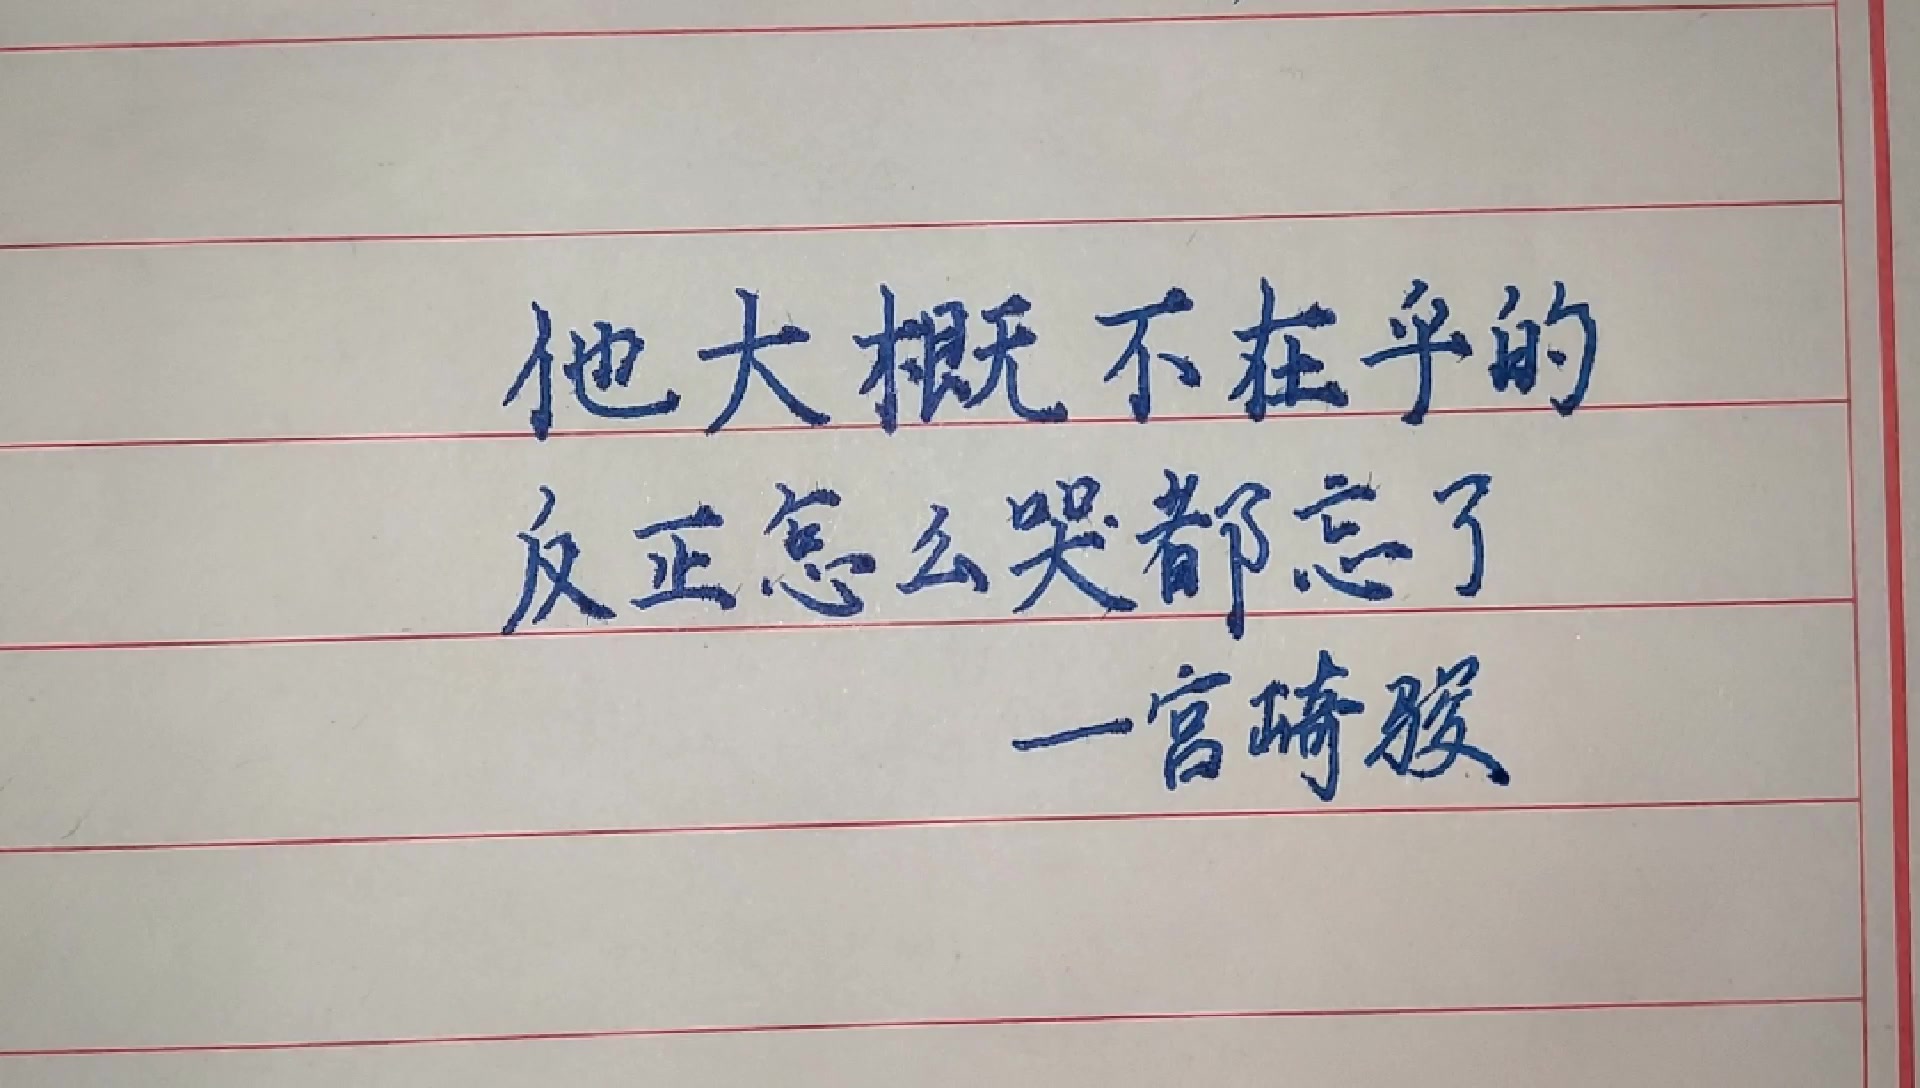 他大概不在乎的
反正怎么哭都忘了
—宫崎骏